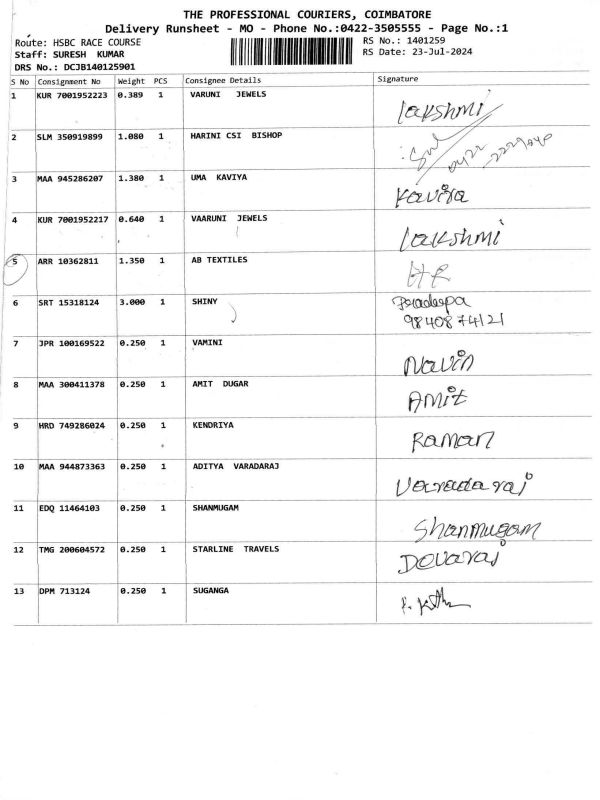 THE PROFESSIONAL COURIERS, COIMBATORE
Delivery Runsheet - MO - Phone No.:0422-3505555 - Page No.:1
Route: HSBC RACE COURSE
RS No.: 1401259
Staff: SURESH KUMAR
RS Date: 23-Jul-2024
DRS No.: DCJB140125901
S No Consignment No Weight PCS Consignee Details Signature
1 KUR 7001952223 0.389 1 VARUNI JEWELS Lakshmi
2 SLM 350919899 1.080 1 HARINI CSI BISHOP 0422
3 MAA 945286207 1.380 1 UMA KAVIYA Kaviya
4 KUR 7001952217 0.640 1 VAARUNI JEWELS Lakshmi
5 ARR 10362811 1.350 1 AB TEXTILES
6 SRT 15318124 3.000 1 SHINY Pradeepa
9840874121
7 JPR 100169522 0.250 1 VAMINI Navin
8 MAA 300411378 0.250 1 AMIT DUGAR Amit
9 HRD 749286024 0.250 1 KENDRIYA Raman
10 MAA 944873363 0.250 1 ADITYA VARADARAJ Varadaraj
11 EDQ 11464103 0.250 1 SHANMUGAM Shanmugam
12 TMG 200604572 0.250 1 STARLINE TRAVELS Devaraj
13 DPM 713124 0.250 1 SUGANGA